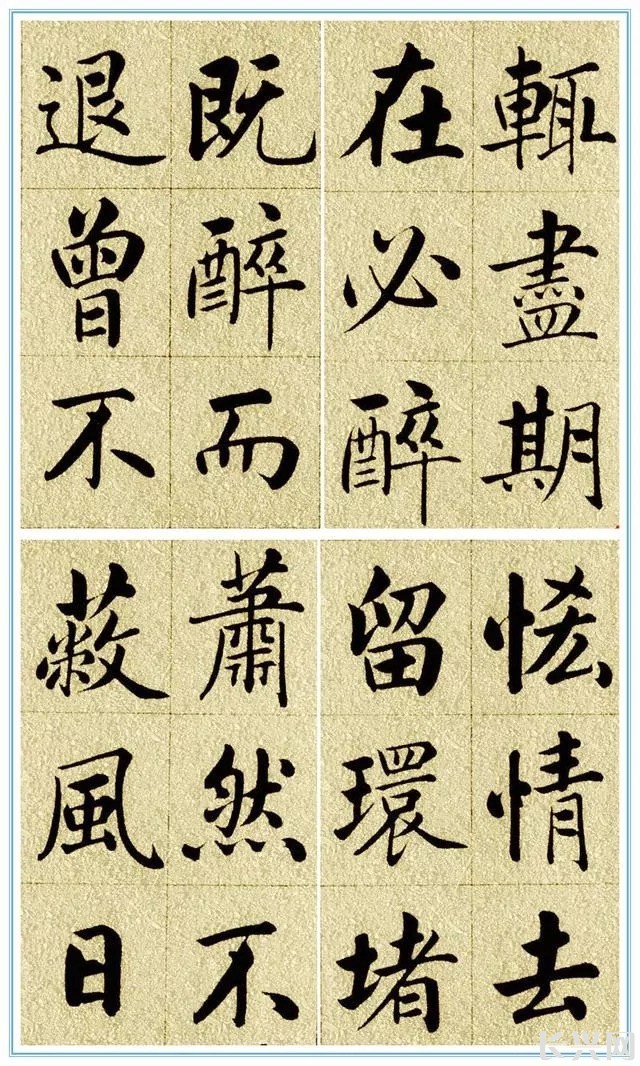 輒盡期
在必醉
既醉而
退曾不
恡情去
留環堵
蕭然不
蔽風日
长兴网